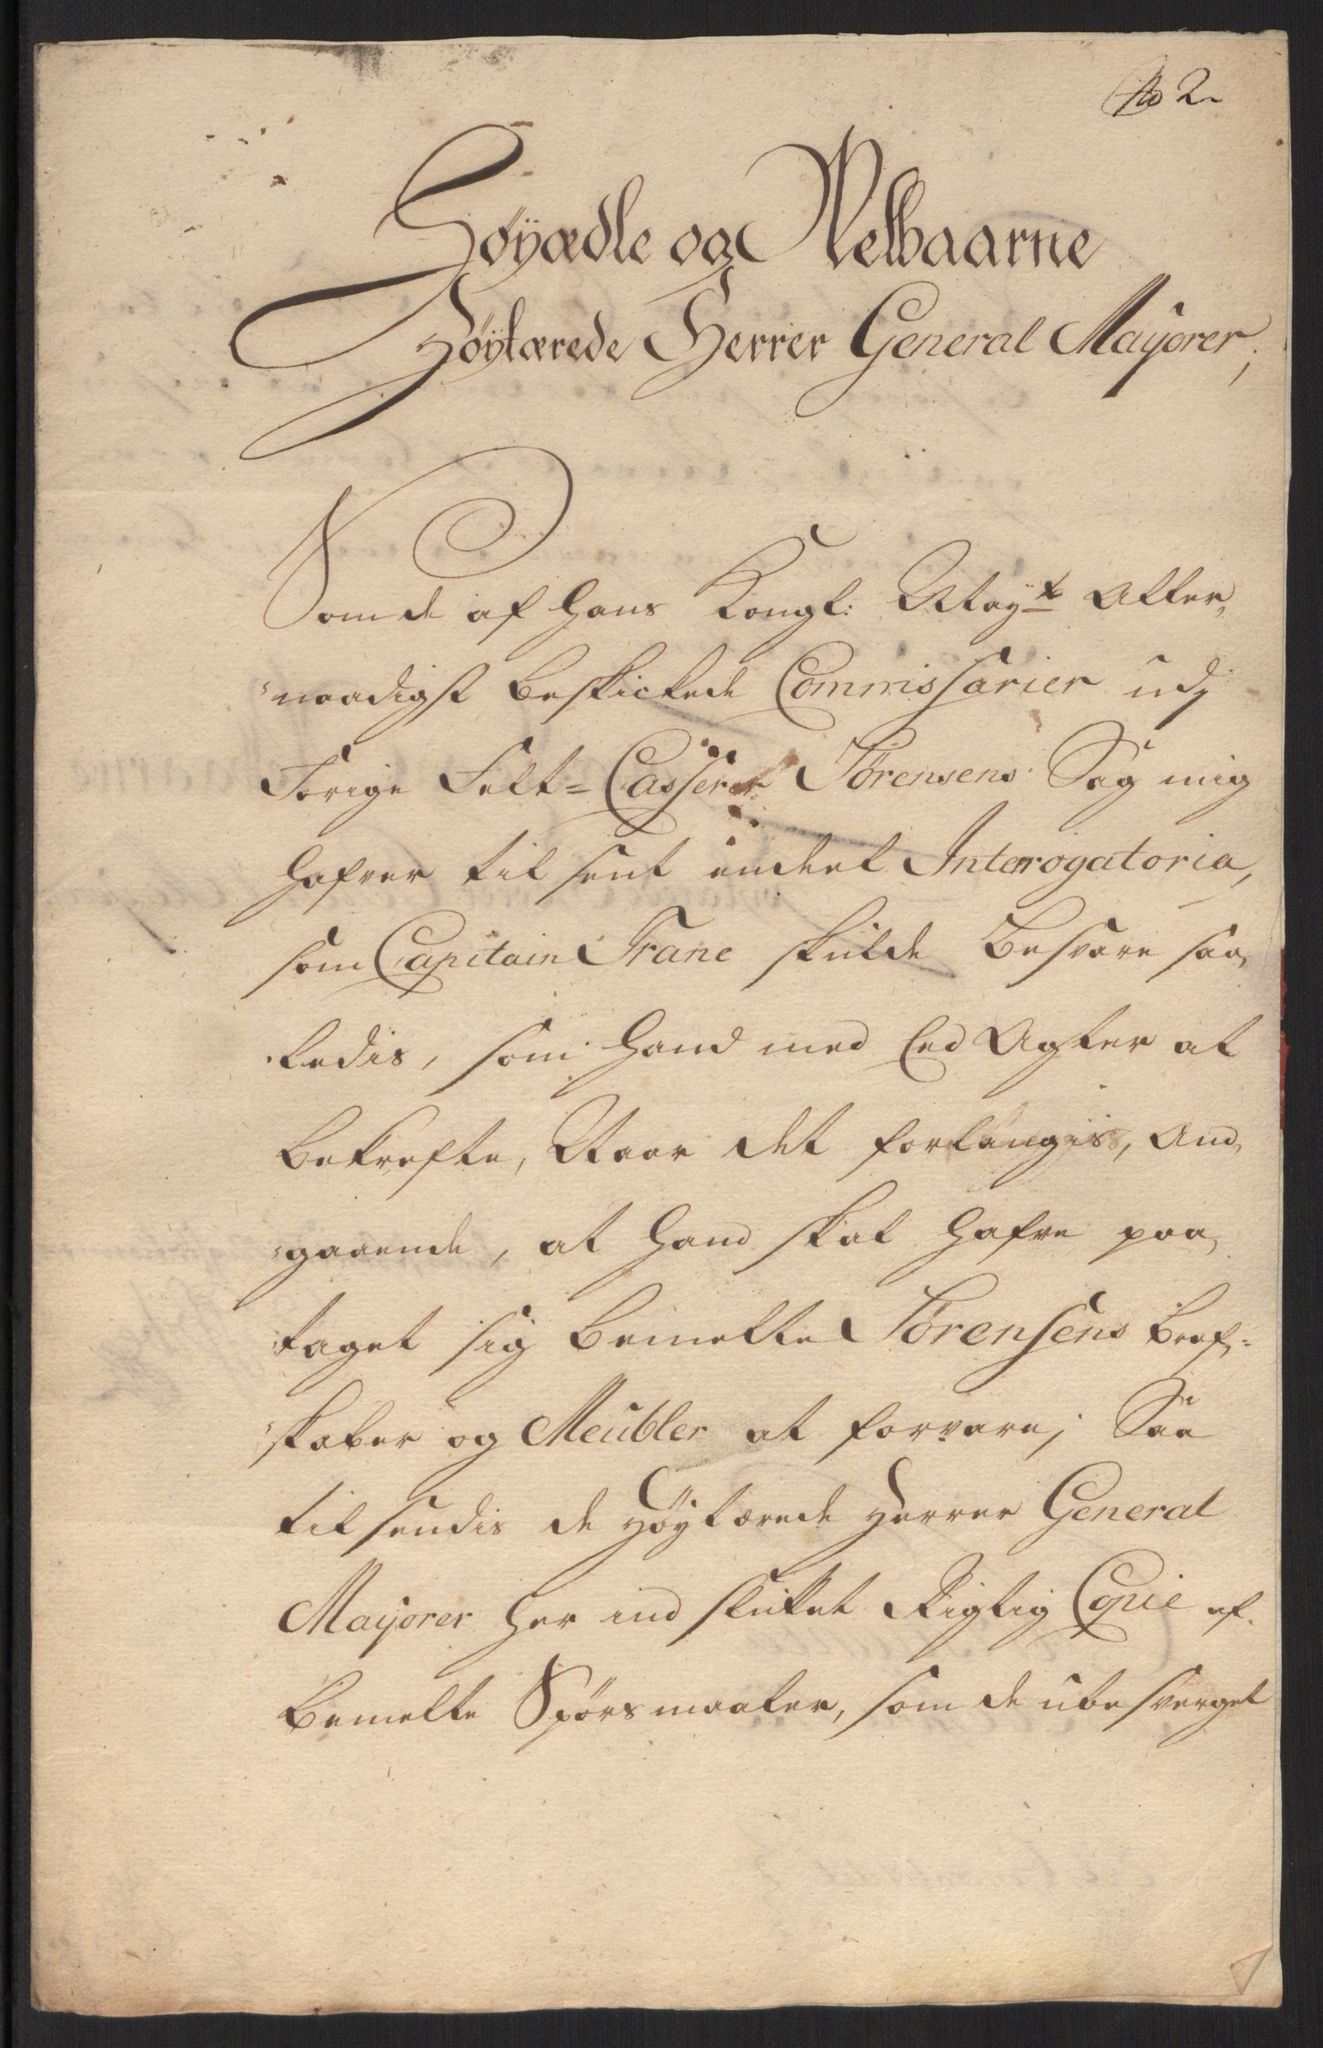 No 2.
Høyædle og Velbaarne
Høytærede Herrer General Mayorer;
Som de af hans Kongl: Mayt Aller,
naadigst beskickede Commissarier udj
Forige Felt=Casserer Sørensens Sag mig
hafver til sent endeel Interogatoria,
som Capitain Trane skulde besvare saa,
ledis, som hand med Eed Agter at
bekrefte, Naar det forlangis, An,
gaaende, at hand skal hafve paa,
taget sig bemelte Sørensens bref=
skaber og Meubler at forvare; Saa
til sendis de Høytærede Herrer General
Mayorer her ind sluttet Rigtig Copie af
bemelte Spørsmaaler, som de ubesverget